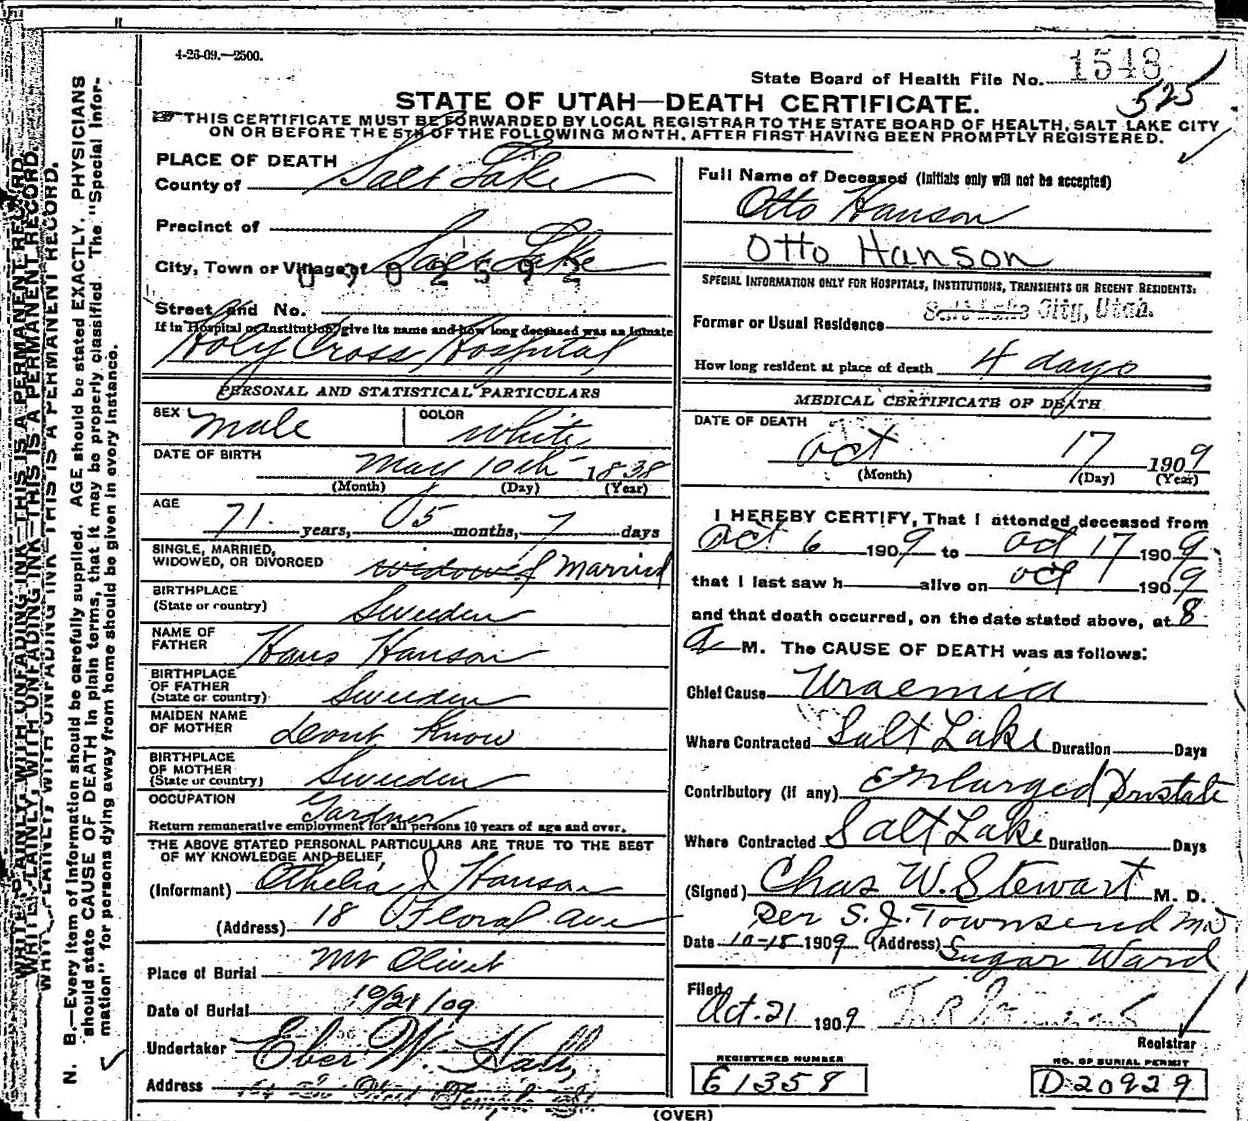 4-26-09.—2500.
State Board of Health File No. 1548
525
STATE OF UTAH—DEATH CERTIFICATE.
THIS CERTIFICATE MUST BE FORWARDED BY LOCAL REGISTRAR TO THE STATE BOARD OF HEALTH, SALT LAKE CITY
ON OR BEFORE THE 5TH OF THE FOLLOWING MONTH, AFTER FIRST HAVING BEEN PROMPTLY REGISTERED.
PLACE OF DEATH
County of Salt Lake
Precinct of
City, Town or Village of Salt Lake
0902592
Street and No.
If in Hospital or Institution, give its name and how long deceased was an inmate
Holy Cross Hospital
PERSONAL AND STATISTICAL PARTICULARS
SEX male COLOR white
DATE OF BIRTH May 10th 1838
(Month) (Day) (Year)
AGE 71 years, 05 months, 7 days
SINGLE, MARRIED,
WIDOWED, OR DIVORCED widowed Married
BIRTHPLACE
(State or country) Sweeden
NAME OF
FATHER Hans Hanson
BIRTHPLACE
OF FATHER
(State or country) Sweeden
MAIDEN NAME
OF MOTHER dont Know
BIRTHPLACE
OF MOTHER
(State or country) Sweeden
OCCUPATION Gardner
Return remunerative employment for all persons 10 years of age and over.
THE ABOVE STATED PERSONAL PARTICULARS ARE TRUE TO THE BEST
OF MY KNOWLEDGE AND BELIEF
(Informant) Othelia J Hanson
(Address) 18 Floral Ave
Place of Burial Mt Olivet
Date of Burial 10/21/09
Undertaker Eber W. Hall,
Address
Full Name of Deceased (Initials only will not be accepted)
Otto Hanson
Otto Hanson
SPECIAL INFORMATION ONLY FOR HOSPITALS, INSTITUTIONS, TRANSIENTS OR RECENT RESIDENTS:
Former or Usual Residence Salt Lake City, Utah.
How long resident at place of death 4 days
MEDICAL CERTIFICATE OF DEATH
DATE OF DEATH
Oct 17 1909
(Month) (Day) (Year)
I HEREBY CERTIFY, That I attended deceased from
Oct 6 1909 to Oct 17 1909
that I last saw h alive on Oct 17 1909
and that death occurred, on the date stated above, at 8
a M. The CAUSE OF DEATH was as follows:
Chief Cause Uraemia
Where Contracted Salt Lake Duration Days
Contributory (if any) Enlarged Prostate
Where Contracted Salt Lake Duration Days
(Signed) Chas W. Stewart M. D.
Per S. J. Townsend MD
Date 10-18 1909 (Address) Sugar Ward
Filed
Oct. 21 1909
Registrar
REGISTERED NUMBER
E1358
NO. OF BURIAL PERMIT
D20929
(OVER)
WRITE PLAINLY, WITH UNFADING INK—THIS IS A PERMANENT RECORD.
N. B.—Every item of information should be carefully supplied. AGE should be stated EXACTLY. PHYSICIANS
should state CAUSE OF DEATH in plain terms, that it may be properly classified. The "Special Infor-
mation" for persons dying away from home should be given in every instance.